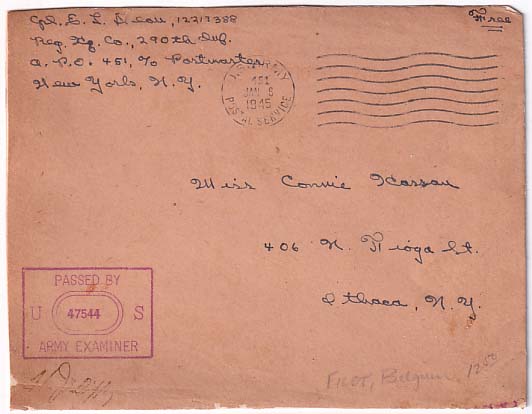 Cpl. E. L. Dean, 12217388
Free
Reg. Hq. Co., 290th Inf.
A. P.O. 451, c/o Postmaster
New York, N.Y.
U.S. ARMY
451
JAN 8
1945
POSTAL SERVICE
Miss Connie Kassau
406 N. Tioga St.
Ithaca, N.Y.
PASSED BY
U 47544 S
ARMY EXAMINER
Belgium 12.50